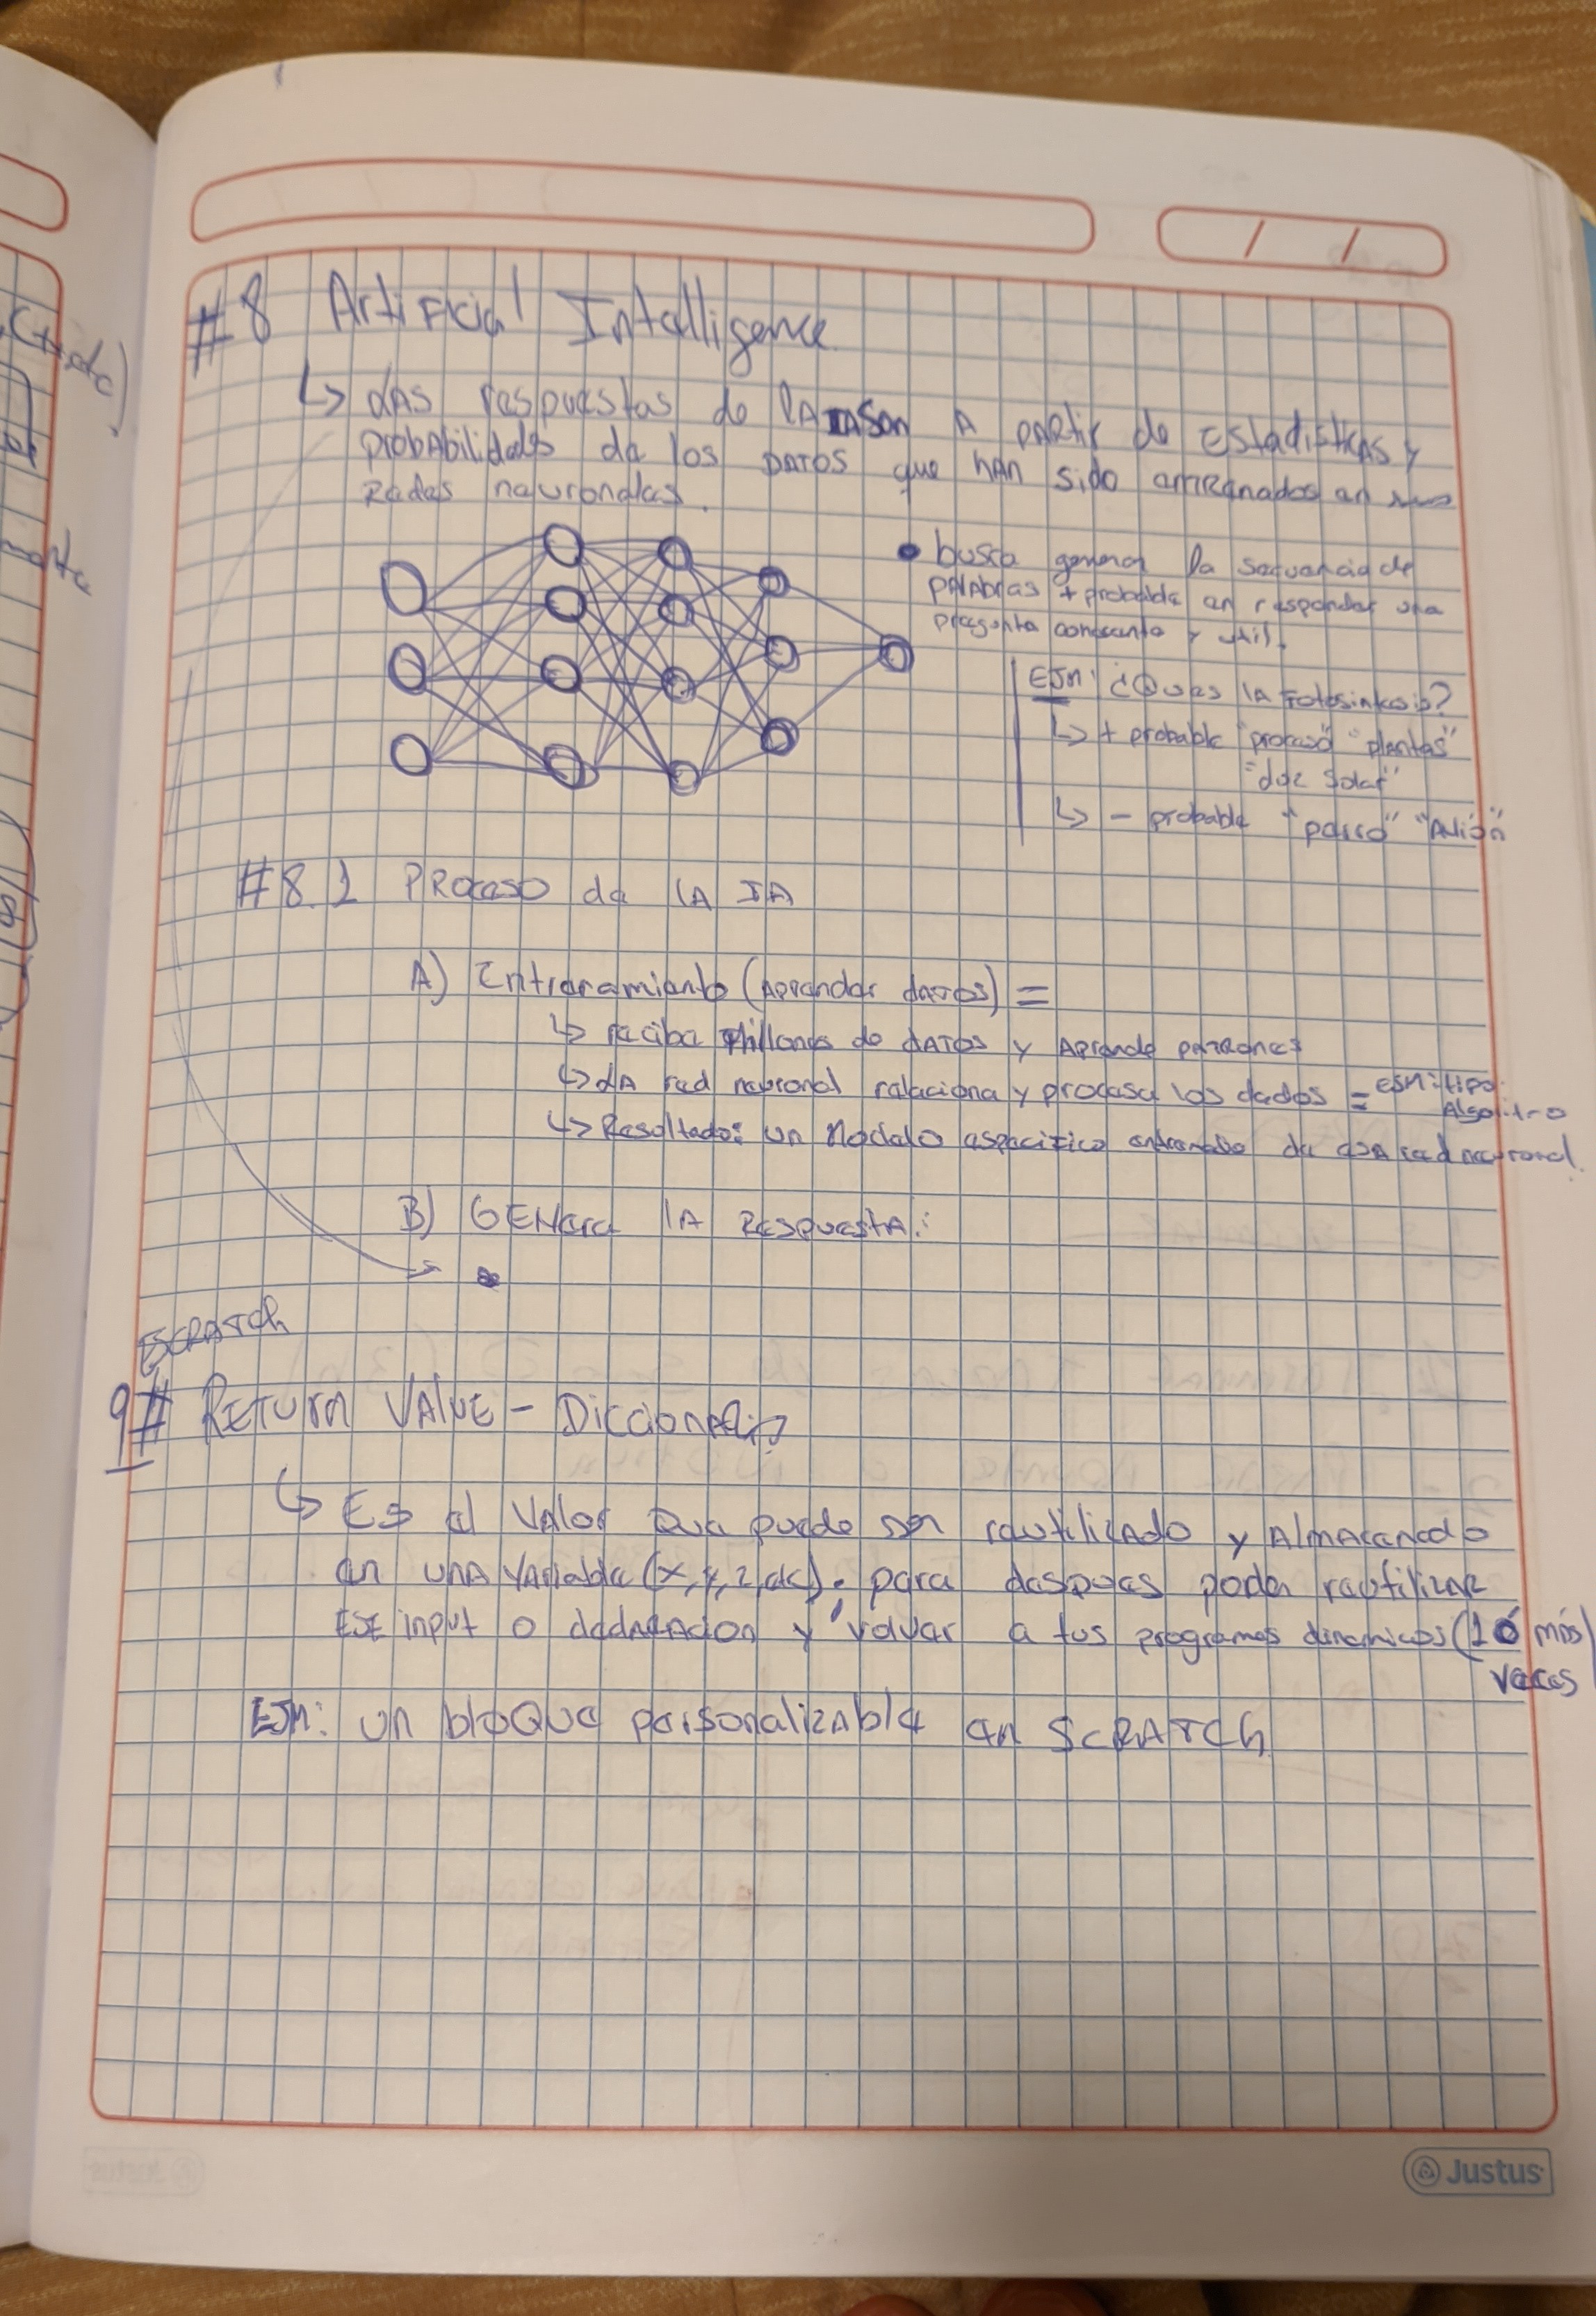 #8 Artificial Intelligence
↳ LAS respuestas de lA IA son A partir de Estadisticas y
probabilidades de los DATOS que han sido entrenados en
Redes neuronales.
• busca generar la secuencia de
palabras + probable en responder una
pregunta y util.
EJM: ¿Qué es la Fotosintesis?
↳ + probable "proceso" "plantas"
"Luz Solar"
↳ - probable "perro" "Avión"
#8.1 Proceso de lA IA
A) Entrenamiento (Aprender datos) =
↳ recibe Millones de DATOS y Aprende patrones
↳ LA red neuronal relaciona y procesa los dados = EJM: tipo
Algoritro
↳ Resultado: un Modelo especifico entrenado de esa red neuronal.
B) GENera lA Respuesta:
•
ESCRATCH
9# RETURN VALUE - Diccionario
↳ Es el Valor que puede ser reutilizado y Almacenado
en una variable (x, y, z, etc). para despues poder reutilizar
ESE input o declaracion y volver a tus programas dinamicos (1 ó más
veces
EJM: un bloque personalizable en SCRATCH
Justus